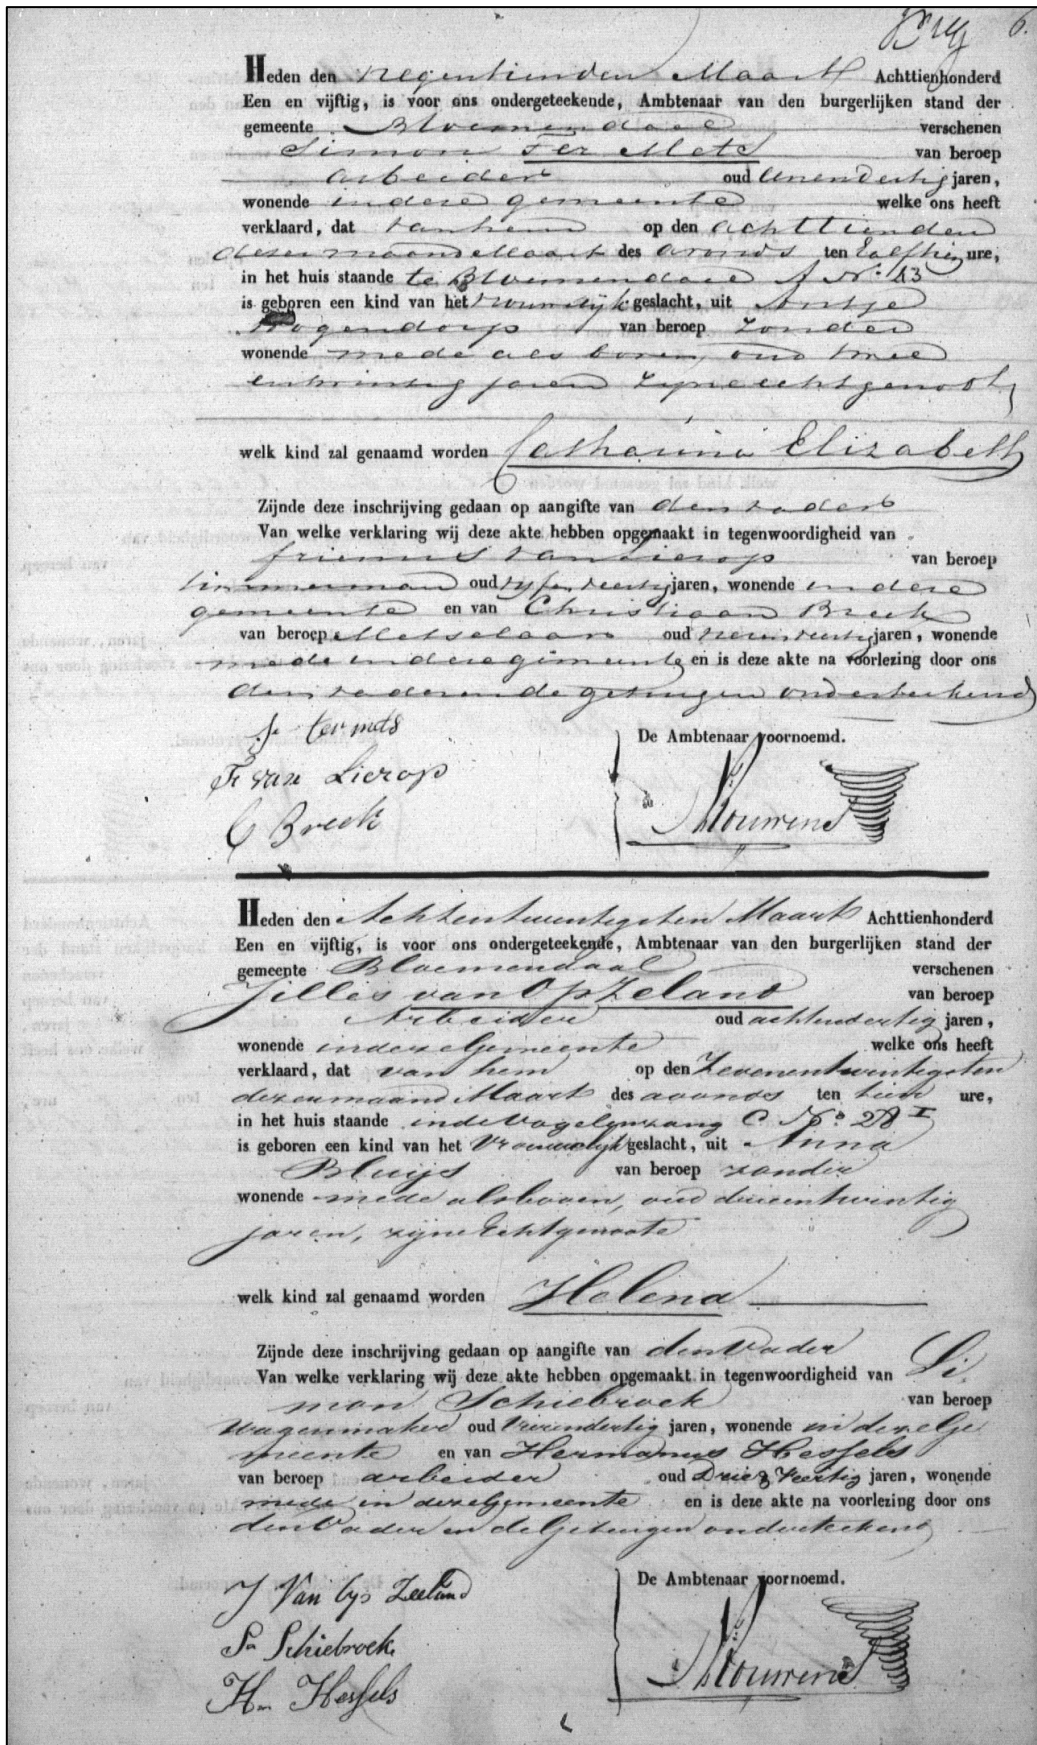 6.
Heden den negentienden Maart Achttienhonderd
Een en vijftig, is voor ons ondergeteekende, Ambtenaar van den burgerlijken stand der
gemeente Bloemendaal verschenen
Simon Ter Mets van beroep
arbeider oud eenendertig jaren,
wonende in deze gemeente welke ons heeft
verklaard, dat van hem op den achttienden
dezer maand Maart des avonds ten half tien ure,
in het huis staande te Bloemendaal A No. 13
is geboren een kind van het vrouwelijk geslacht, uit Antje
Hogendorp van beroep zonder
wonende mede als boven, oud twee
entwintig jaren zijne echtgenoot
welk kind zal genaamd worden Catharina Elizabeth
Zijnde deze inschrijving gedaan op aangifte van den vader
Van welke verklaring wij deze akte hebben opgemaakt in tegenwoordigheid van
van Lierop van beroep
timmerman oud vijfenveertig jaren, wonende in deze
gemeente en van Christiaan Breek
van beroep Metselaar oud jaren, wonende
mede in deze gemeente en is deze akte na voorlezing door ons
den vader en de getuigen onderteekend
S. ter mets De Ambtenaar voornoemd.
Fr van Lierop
C Breek
Heden den Achtentwintigsten Maart Achttienhonderd
Een en vijftig, is voor ons ondergeteekende, Ambtenaar van den burgerlijken stand der
gemeente Bloemendaal verschenen
Jillis van Op Zeland van beroep
Arbeider oud achtendertig jaren,
wonende in deze Gemeente welke ons heeft
verklaard, dat van hem op den Zevenentwintigsten
dezer maand Maart des avonds ten tien ure,
in het huis staande inde Vogelenzang C No. 28 I
is geboren een kind van het Vrouwelijk geslacht, uit Anna
Bluijs van beroep zonder
wonende mede als boven, oud drieentwintig
jaren, zijne Echtgenoote
welk kind zal genaamd worden Helena
Zijnde deze inschrijving gedaan op aangifte van den Vader
Van welke verklaring wij deze akte hebben opgemaakt in tegenwoordigheid van Si
mon Schiebroek van beroep
Wagenmaker oud Vierendertig jaren, wonende in deze Ge
meente en van Hermanus Hessels
van beroep arbeider oud Drie & Veertig jaren, wonende
mede in deze Gemeente en is deze akte na voorlezing door ons
den Vader en de Getuigen onderteekend
J Van Op Zeeland De Ambtenaar voornoemd.
Sn Schiebroek
Hs Hessels